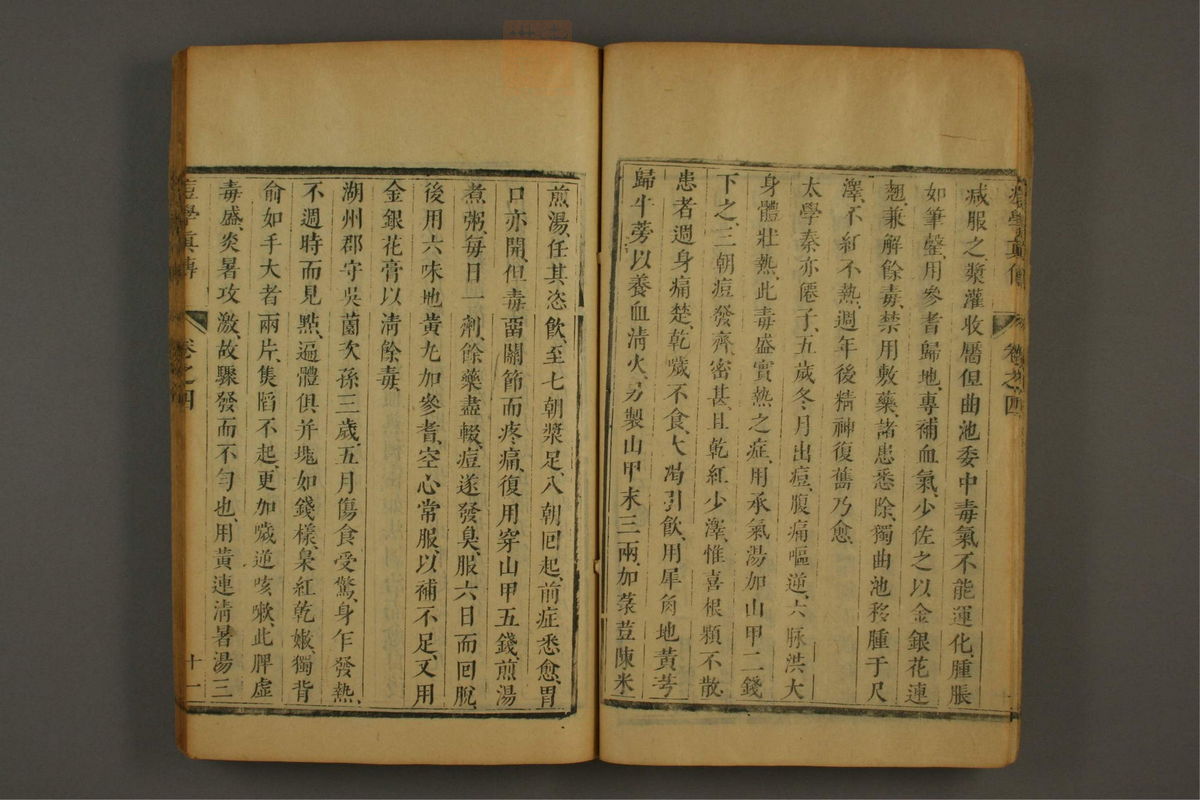 痘學真傳 卷之四
減服之、漿灌收靨、但曲池委中毒氣不能運化、腫脹
如筆罄、用參耆歸地、專補血氣、少佐之以金銀花連
翹、兼解餘毒、禁用敷藥、諸患悉除、獨曲池移腫于尺
澤、不紅不熱、週年後精神復舊乃愈
太學秦亦僊子、五歲冬月出痘、腹痛嘔逆、六脉洪大
身體壯熱、此毒盛實熱之症、用承氣湯加山甲二錢
下之、三朝痘發齊、密甚、且乾紅少澤、惟喜根顆不散、
患者週身痛楚、乾噦不食、大渴引飲、用犀角地黃芩
歸牛蒡以養血清火、另製山甲末三兩、加荽荳陳米
煎湯、任其恣飲、至七朝漿足、八朝囘起、前症悉愈、胃
口亦開、但毒畱關節而疼痛、復用穿山甲五錢、煎湯
煮粥、每日一劑、餘藥盡輟、痘遂發臭、服六日而囘脫
後用六味地黃丸加參耆、空心常服、以補不足、又用
金銀花膏以淸餘毒、
湖州郡守吳薗次孫三歲、五月傷食受驚、身乍發熱、
不週時而見點、遍體俱并塊如錢樣、梟紅乾嫩、獨背
俞如手大者兩片、隻䧟不起、更加噦逆咳嗽、此脾虛
毒盛、炎暑攻激、故驟發而不匀也、用黃連淸暑湯三
痘學真傳 卷之四 十一